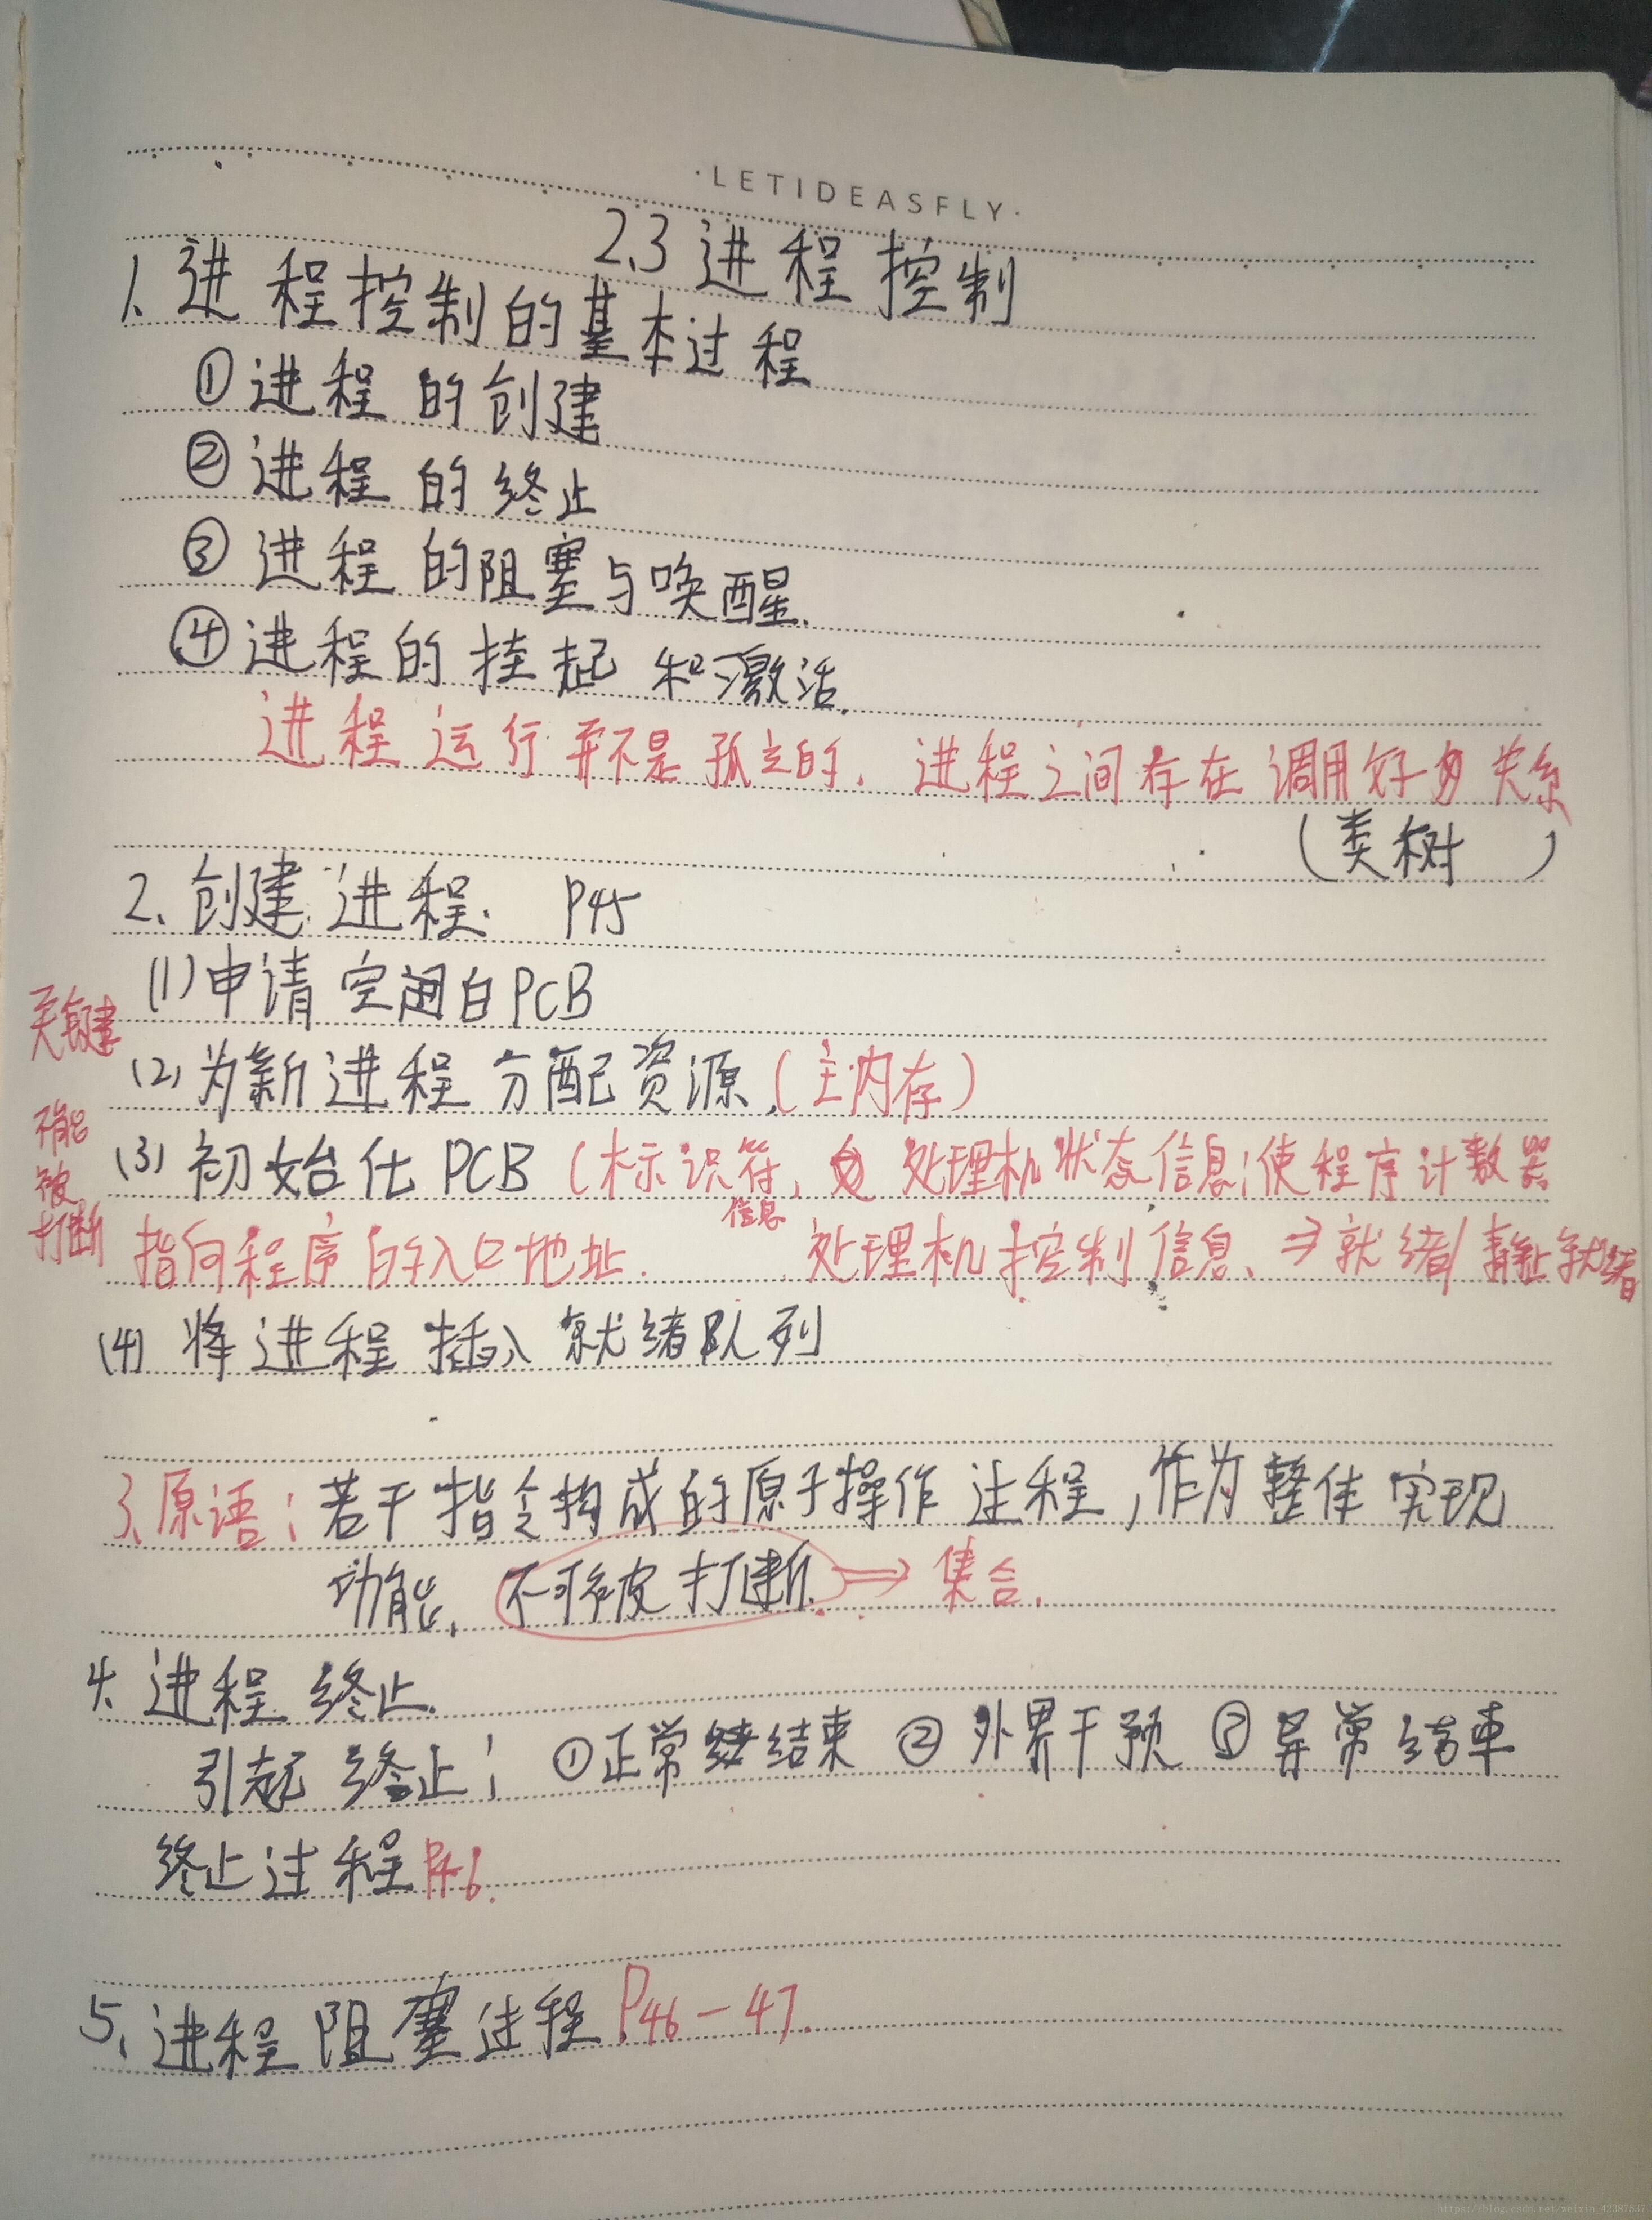 ·LETIDEASFLY·
2.3 进程控制
1、进程控制的基本过程
①进程的创建
②进程的终止
③进程的阻塞与唤醒.
④进程的挂起和激活.
进程运行并不是孤立的. 进程之间存在调用好多关系
(类树 )
2、创建进程. P45
(1)申请空闲白PCB
关键
(2)为新进程分配资源.(主内存)
不能
被
打断
(3)初始化PCB(标识符, 处理机状态信息;使程序计数器
信息
指向程序的入口地址. 处理机控制信息、⇒就绪/静止就绪
(4)将进程插入就绪队列
3、原语:若干指令构成的原子操作过程,作为整体实现
功能,不可被打断.⇒集合.
4.进程终止.
引起终止: ①正常结束 ②外界干预 ③异常结束
终止过程P46.
5、进程阻塞过程P46-47.
https://blog.csdn.net/weixin_42387537